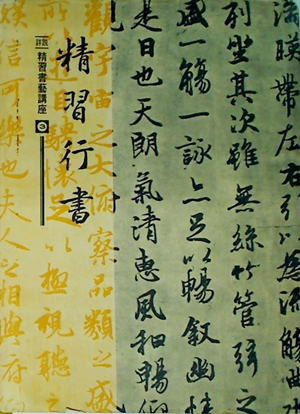 湍暎帶左右引以為流觴曲
列坐其次雖無絲竹管弦之
盛一觴一詠亦足以暢敘幽情
是日也天朗氣清惠風和暢仰
觀宇宙之大俯察品類之盛
精習行書
騁懷足以極視聽之
精習書藝講座
娛信可樂也夫人之相與俯